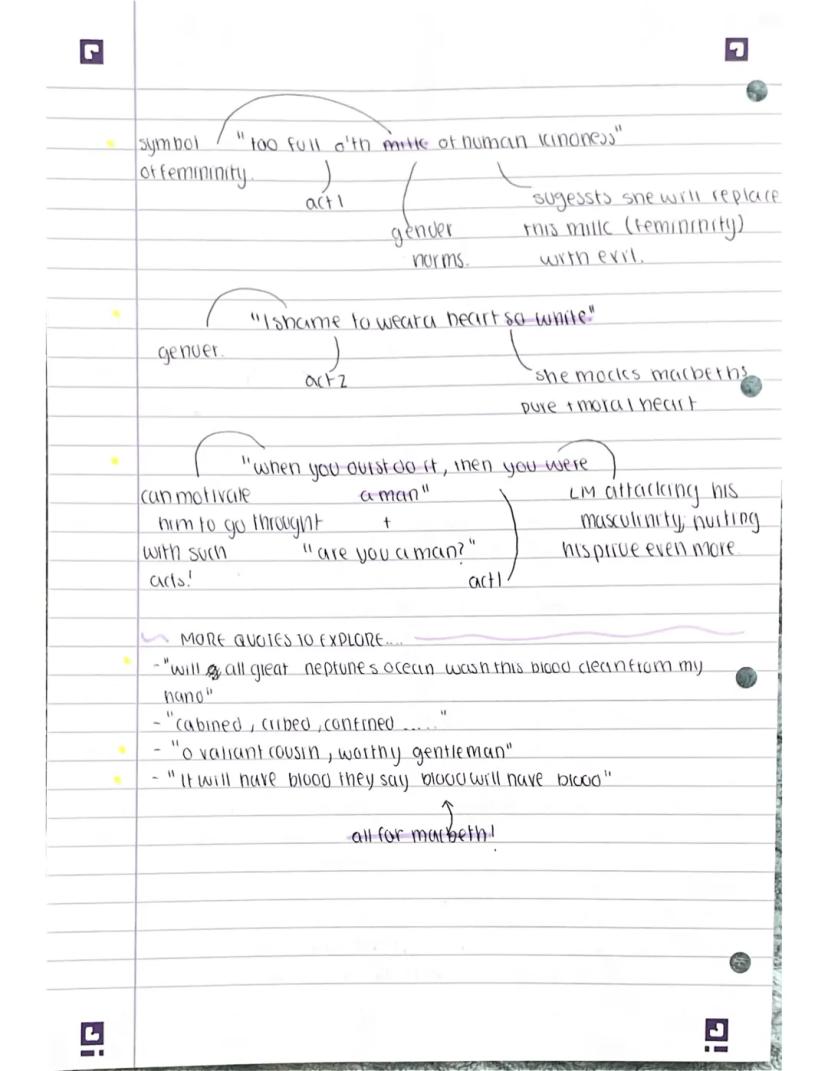 symbol "too full o'th milk of human kindness"
of femininity.
act 1
sugessts she will replace
gender this milk (femininity)
norms. with evil.
"I shame to wear a heart so white"
gender.
act 2
she mocks macbeths
pure + moral heart
"when you durst do it, then you were
can motivate a man" LM attacking his
him to go throught + masculinity, hurting
with such "are you a man?" his pride even more
acts! act 1
MORE QUOTES TO EXPLORE....
- "will all great neptunes ocean wash this blood clean from my
hand"
- "cabined, cribed, confined ....."
- "o valiant cousin, worthy gentleman"
- "It will have blood they say blood will have blood"
all for macbeth!